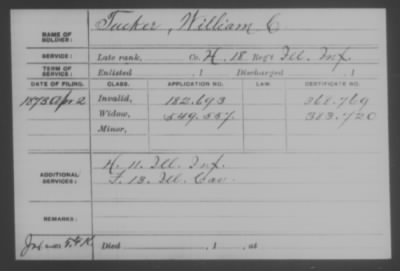 NAME OF SOLDIER: Tucker, William C
SERVICE: Late rank, Co. H, 18 Reg't Ill. Inf.
TERM OF SERVICE: Enlisted , 1 Discharged , 1
DATE OF FILING. CLASS. APPLICATION NO. LAW. CERTIFICATE NO.
1873 Apr 2 Invalid, 182.693 368.769
Widow, 549.557 383.720
Minor,
ADDITIONAL SERVICES: H. 11. Ill. Inf.
F. 13. Ill. Cav.
REMARKS:
Died , 1 , at